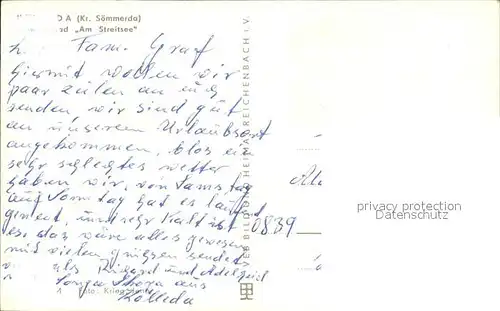 DA (Kr. Sömmerda)
ad „Am Streitsee"
Fam. Graf
hiermit wollen wir
paar zeilen an euch
senden wir sind gut
an unserem Urlaubsort
angekommen, blos ein
sehr schlegtes wetter
haben wir, von Samstag
auf Sonntag hat es
und sehr Kalt ist
es. das wäre alles gewesen
mit vielen grüssen sendet
Richard und Adelheid
aus
Kölleda
Foto:
VEB BILD UND HEIMAT REICHENBACH i. V.
0839
privacy protection
Datenschutz